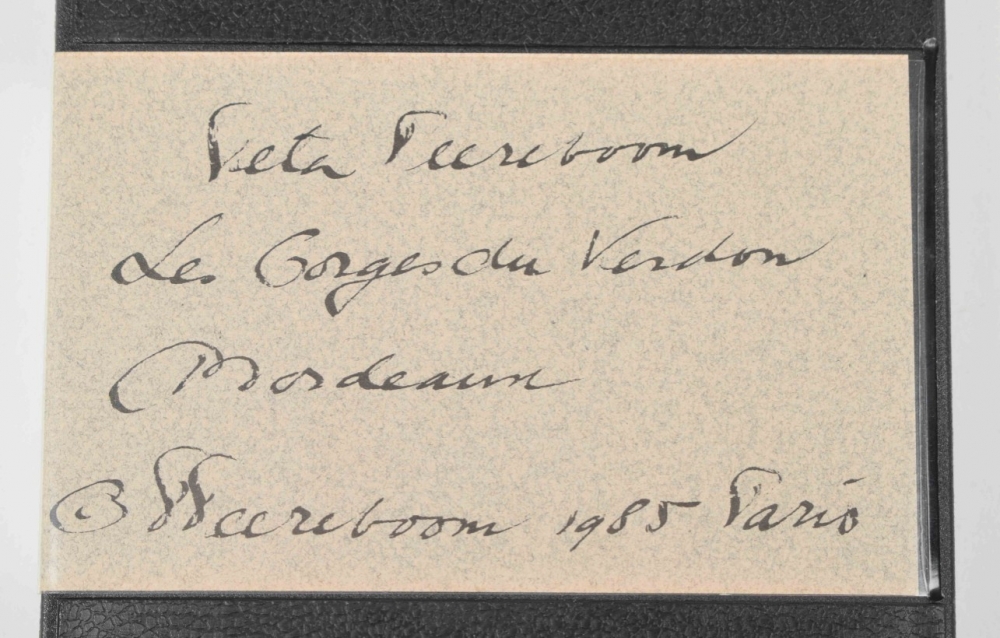 Peta Peereboom
Les Gorges du Verdon
Bordeaux
© PPeereboom 1985 Paris